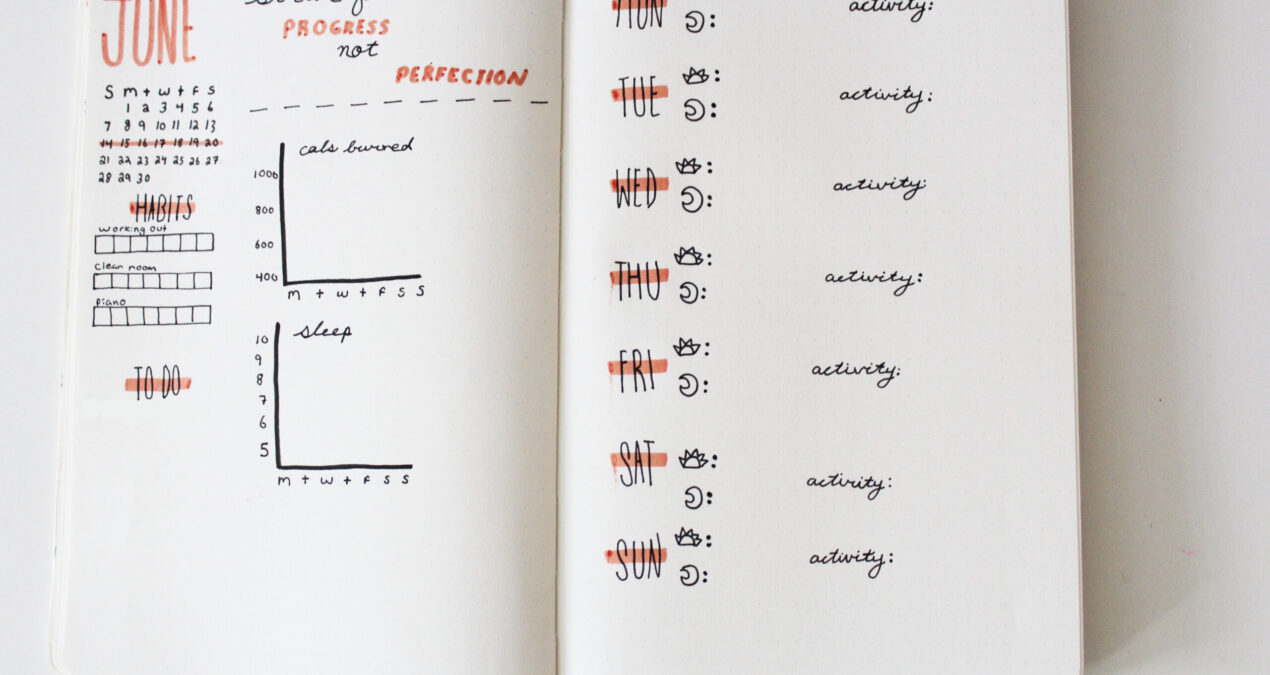 JUNE
PROGRESS
not
PERFECTION
S M t w t F S
1 2 3 4 5 6
7 8 9 10 11 12 13
14 15 16 17 18 19 20
21 22 23 24 25 26 27
28 29 30
HABITS
working out
clean room
piano
TO DO
cals burned
1000
800
600
400
m t w t F S S
sleep
10
9
8
7
6
5
m t w t F S S
MON : activity:
TUE : : activity:
WED : : activity:
THU : : activity:
FRI : : activity:
SAT : : activity:
SUN : : activity: